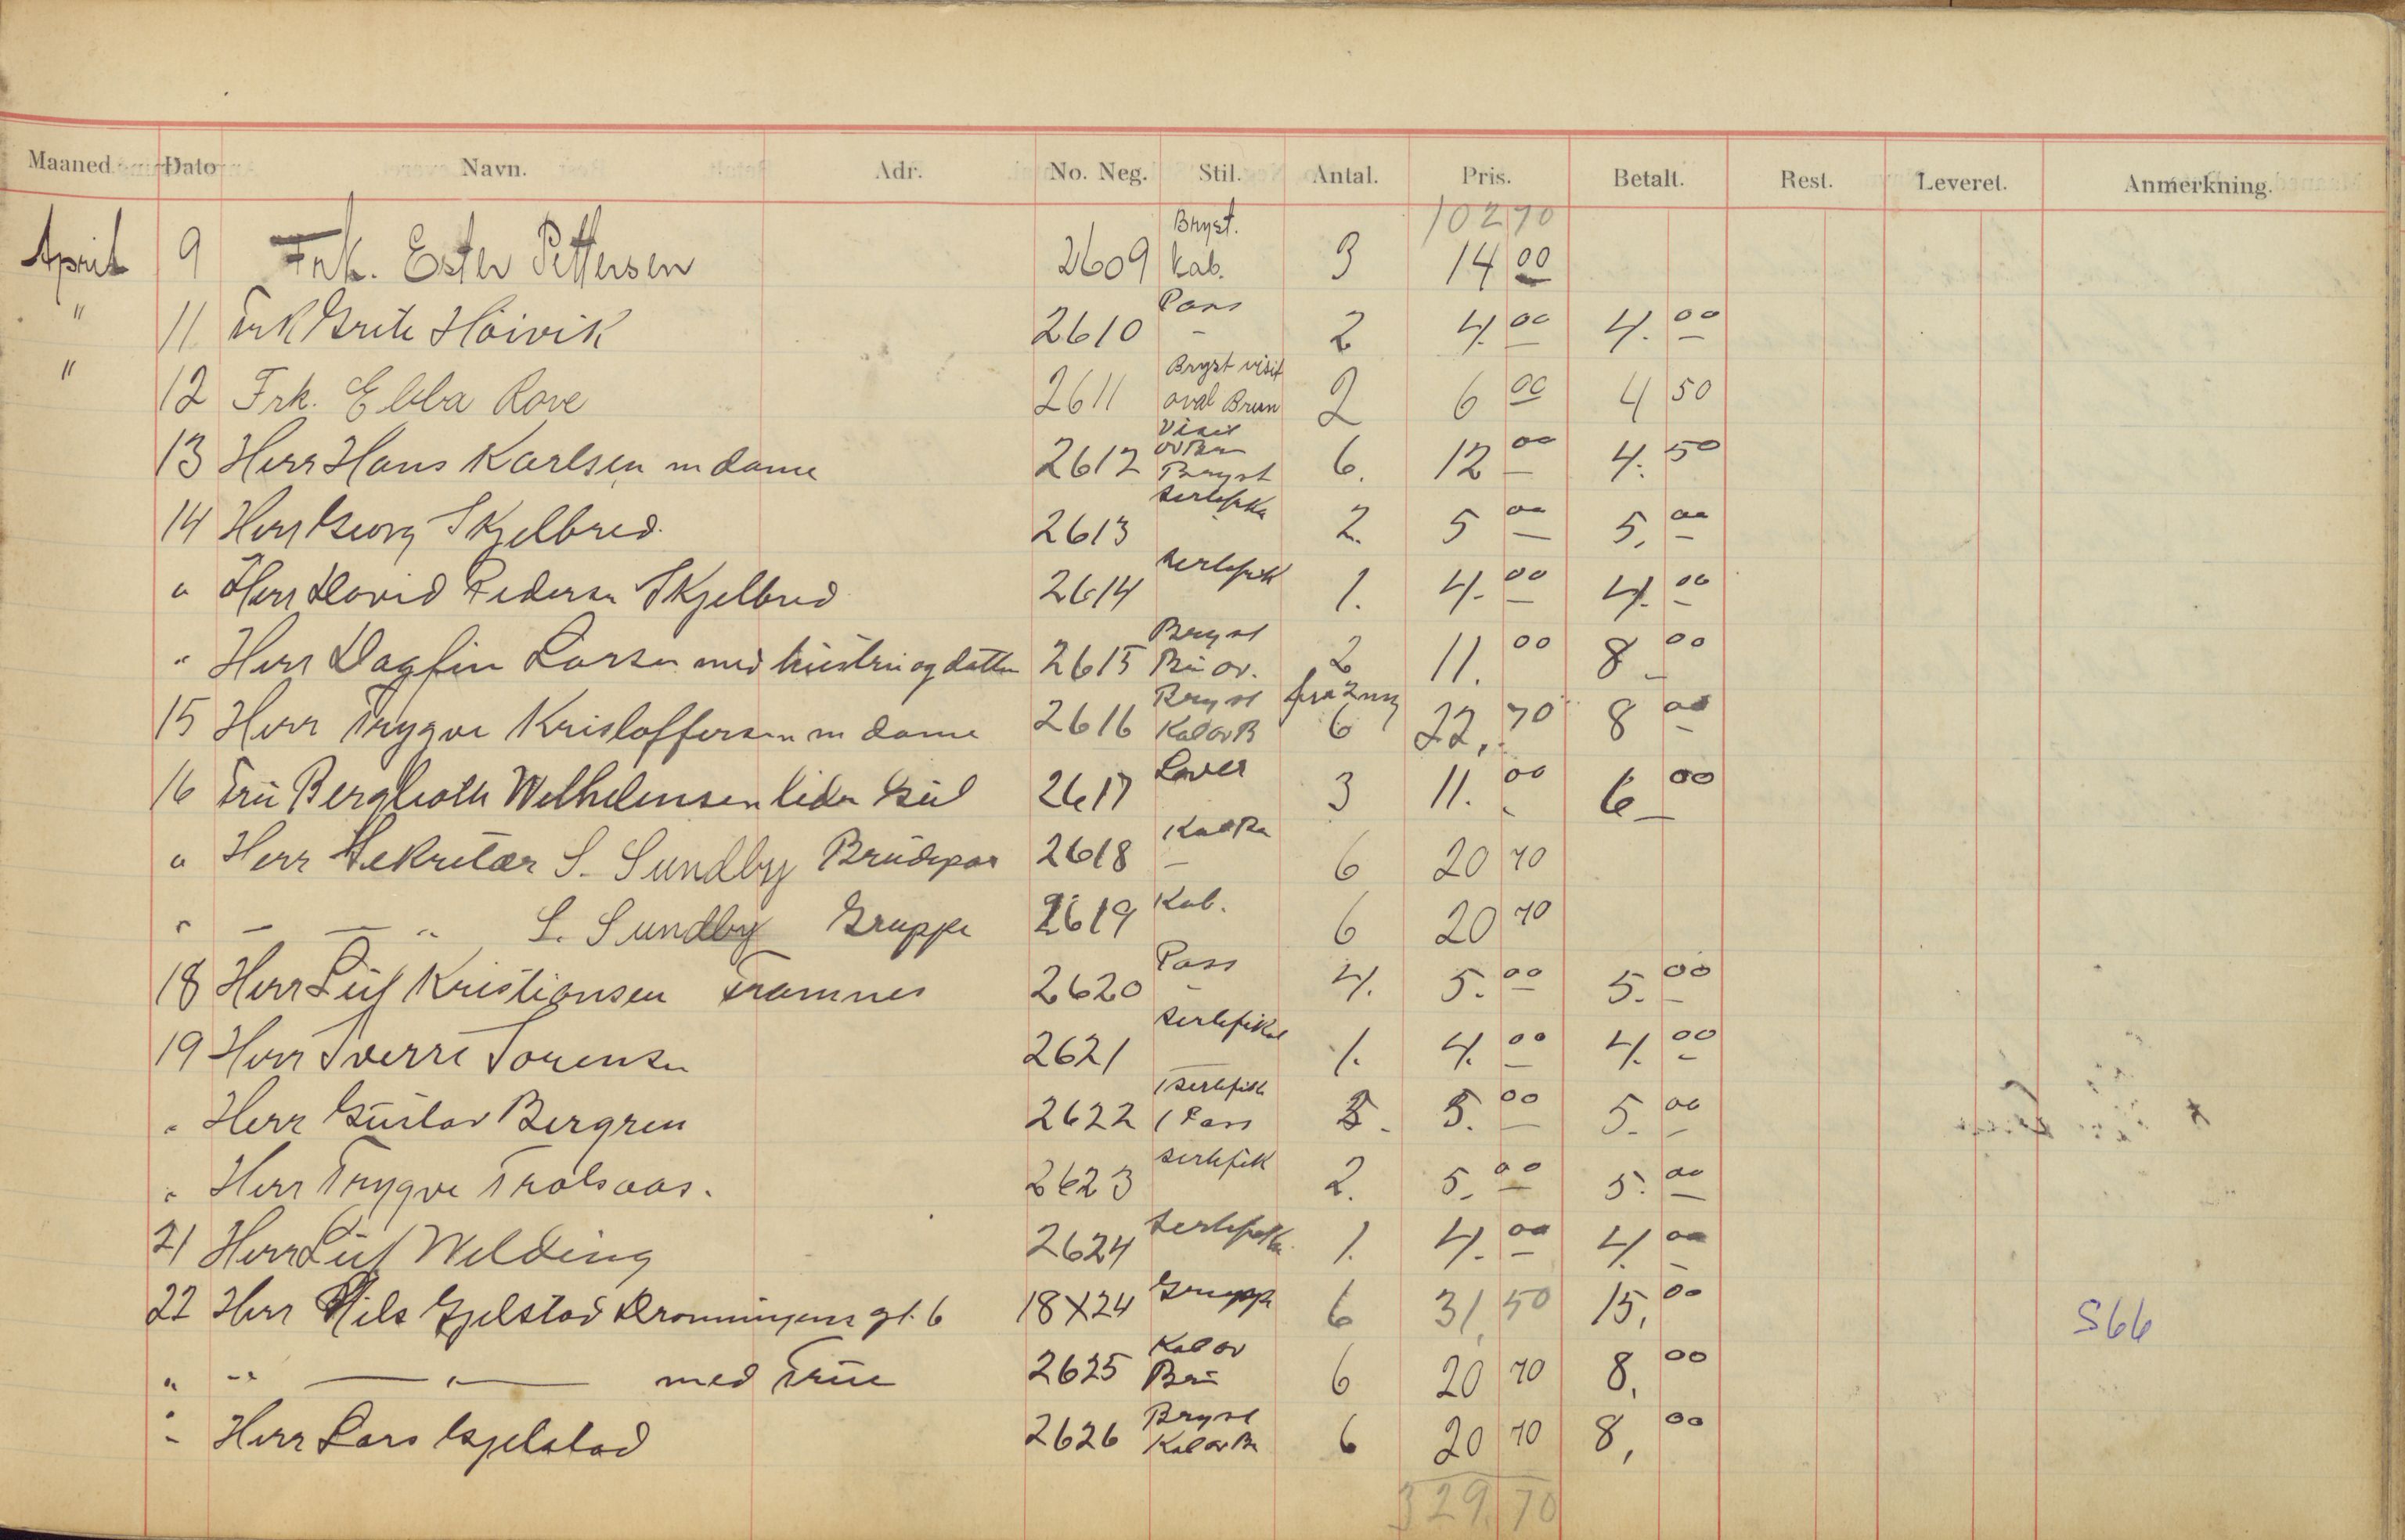 Maaned. Dato Navn. Adr. No. Neg. Stil. Antal. Pris. Betalt. Rest. Leveret. Anmerkning.
102 70
April 9 Frk. Ester Pettersen 2609 Bryst. kab. 3 14 00
" 11 Frk Grete Höivik 2610 Pass - 2 4. 00 4. 00
" 12 Frk. Ebba Rove 2611 Bryst visit oval Brun 2 6 00 4 50
13 Herr Hans Karlsen m dame 2612 Visit ov Brun Bryst 6. 12 00 4. 50
14 Herr Georg Skjelbred. 2613 sertefika 2. 5 00 5. 00
" Herr David Pedersen Skjelbred 2614 sertefik 1. 4. 00 4. 00
" Herr Dagfin Larsen med hüstrü og datter 2615 Bryst Brü ov. 2 11. 00 8 00
15 Herr Trygve Kristoffersen m dame 2616 Bryst Kab ov B fra 2 neg 6 22,. 70 8 00
16 Frü Bergljoth Welhelmsen liden Gül 2617 3 11. 00 6 00
" Herr Sekretær S. Sundby Brüdepar 2618 Kab Br - 6 20 70
" — — " S. Sundby Gruppe 2619 Kab. 6 20 70
18 Herr Leif Kristiansen Framnes 2620 Pass - 4. 5. 00 5. 00
19 Herr Sverre Sörensen 2621 sertefikat 1. 4. 00 4. 00
" Herr Güstav Bergren 2622 1 sertefik 1 Pass 5. 00 5. 00
" Herr Trygve Trolsaas. 2623 sertefik 2. 5. 00 5. 00
21 Herr Leif Welding 2624 sertefika 1. 4. 00 4. 00
22 Herr Nils Gjelstad Dronningens gt. 6 18X24 Gruppe 6 31, 50 15, 00 S66
" " — " — med Früe 2625 Kab ov Brü 6 20 70 8, 00
" Herr Lars Gjelstad 2626 Bryst Kab ov Br 6 20 70 8, 00
329. 70